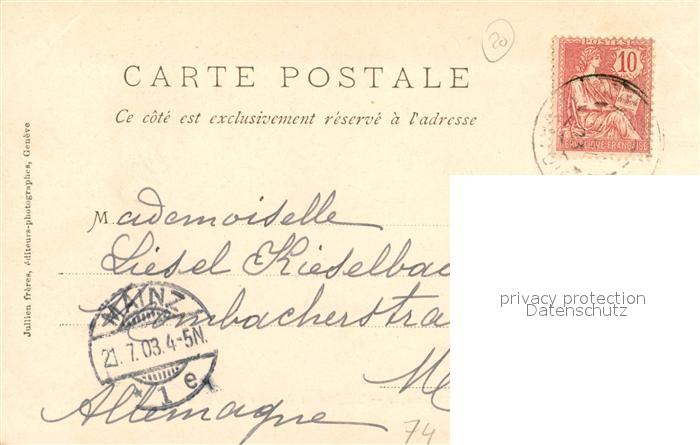 20
POSTES
10
REPUBLIQUE FRANÇAISE
CARTE POSTALE
Ce côté est exclusivement réservé à l'adresse
Jullien frères, éditeurs-photographes, Genève
Mademoiselle
Liesel Kieselbac
Mombacherstra
M
Allemagne
MAINZ
21.7.03.4-5N.
* 1 e
74
privacy protection
Datenschutz